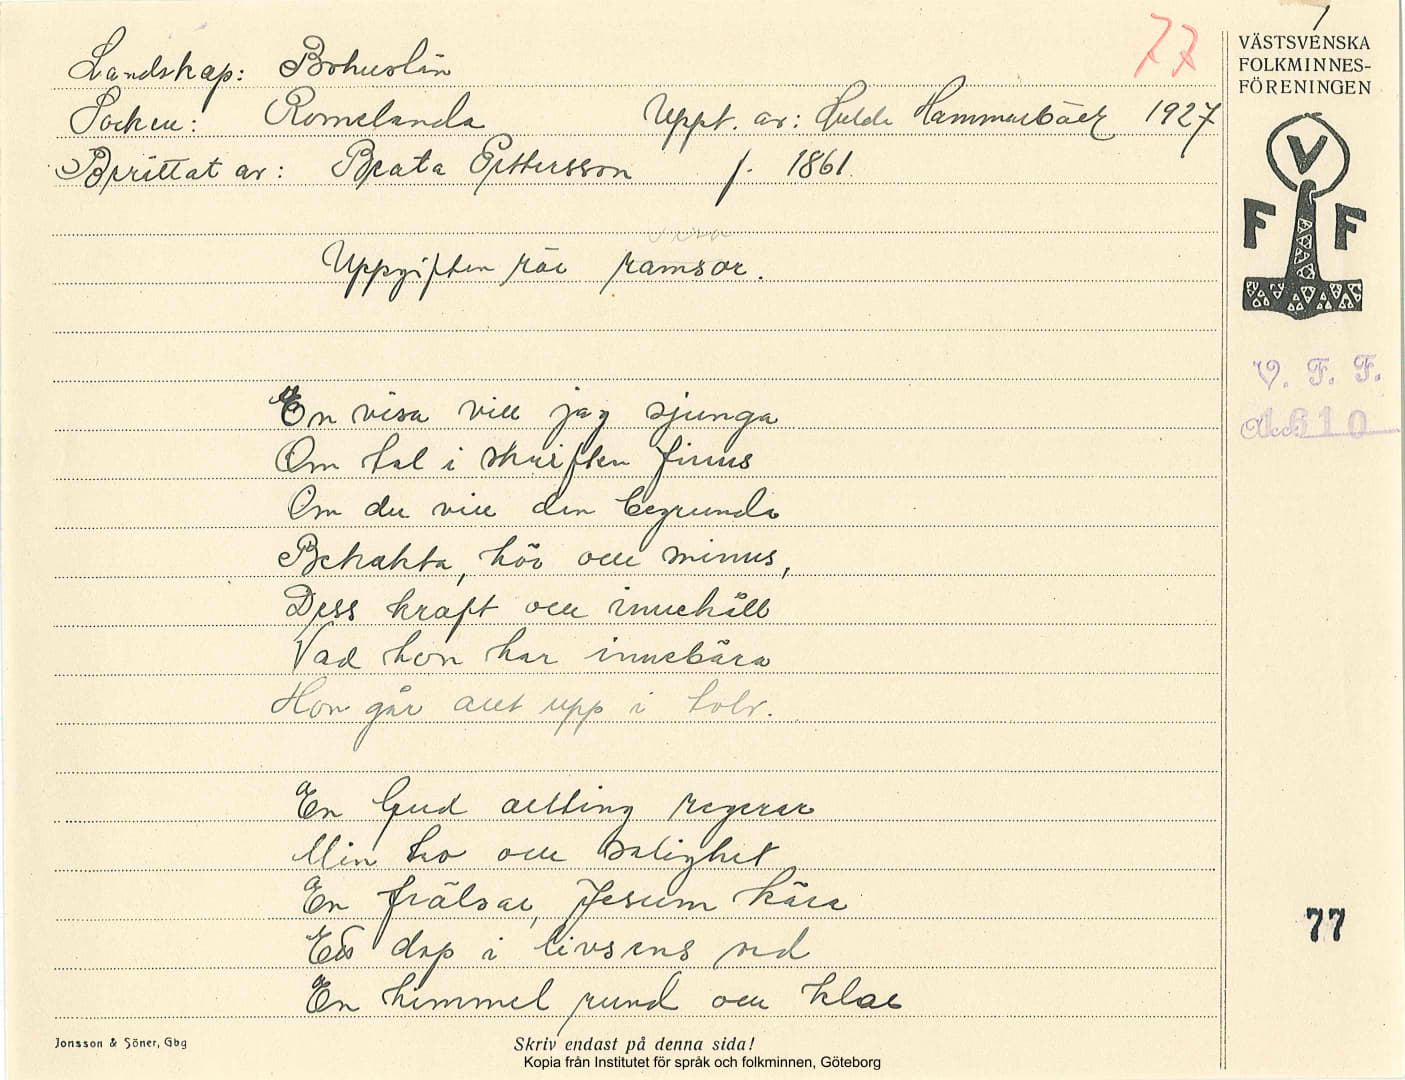 77
1
Landskap: Bohuslän
VÄSTSVENSKA
FOLKMINNES-
FÖRENINGEN
Socken: Romelanda Uppt. av: Hulda Hammarbäck 1927
Berättat av: Beata Pettersson f. 1861.
V
F F
visa
Uppgiften rör ramsor.
V. F. F.
Acc. 1610
En visa vill jag sjunga
Om tal i skriften finns
Om du vill den begrunda
Betrakta, hör och minns,
Dess kraft och innehåll
Vad hon har innebära
Hon går allt upp i tolv.
En Gud allting regerar
Min tro och salighet
En frälsar, Jesum kära
Ett dop i livsens ved
En himmel rund och klar
77
Jonsson & Söner, Gbg
Skriv endast på denna sida!
Kopia från Institutet för språk och folkminnen, Göteborg